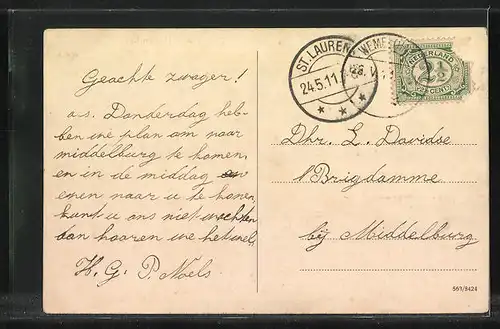 Geachte zwager!
a.s. Donderdag heb-
ben we plan om naar
middelburg te komen,
en in de middag
even naar u te komen,
kunt u ons niet wachten
dan hooren we het wel,
H. G. P. Noels
ST. LAURENS
24.5.11
WEMEL
NEDERLAND
2½
CENT
Dhr. L. Davidse
Brigdamme
bij Middelburg
569/8424